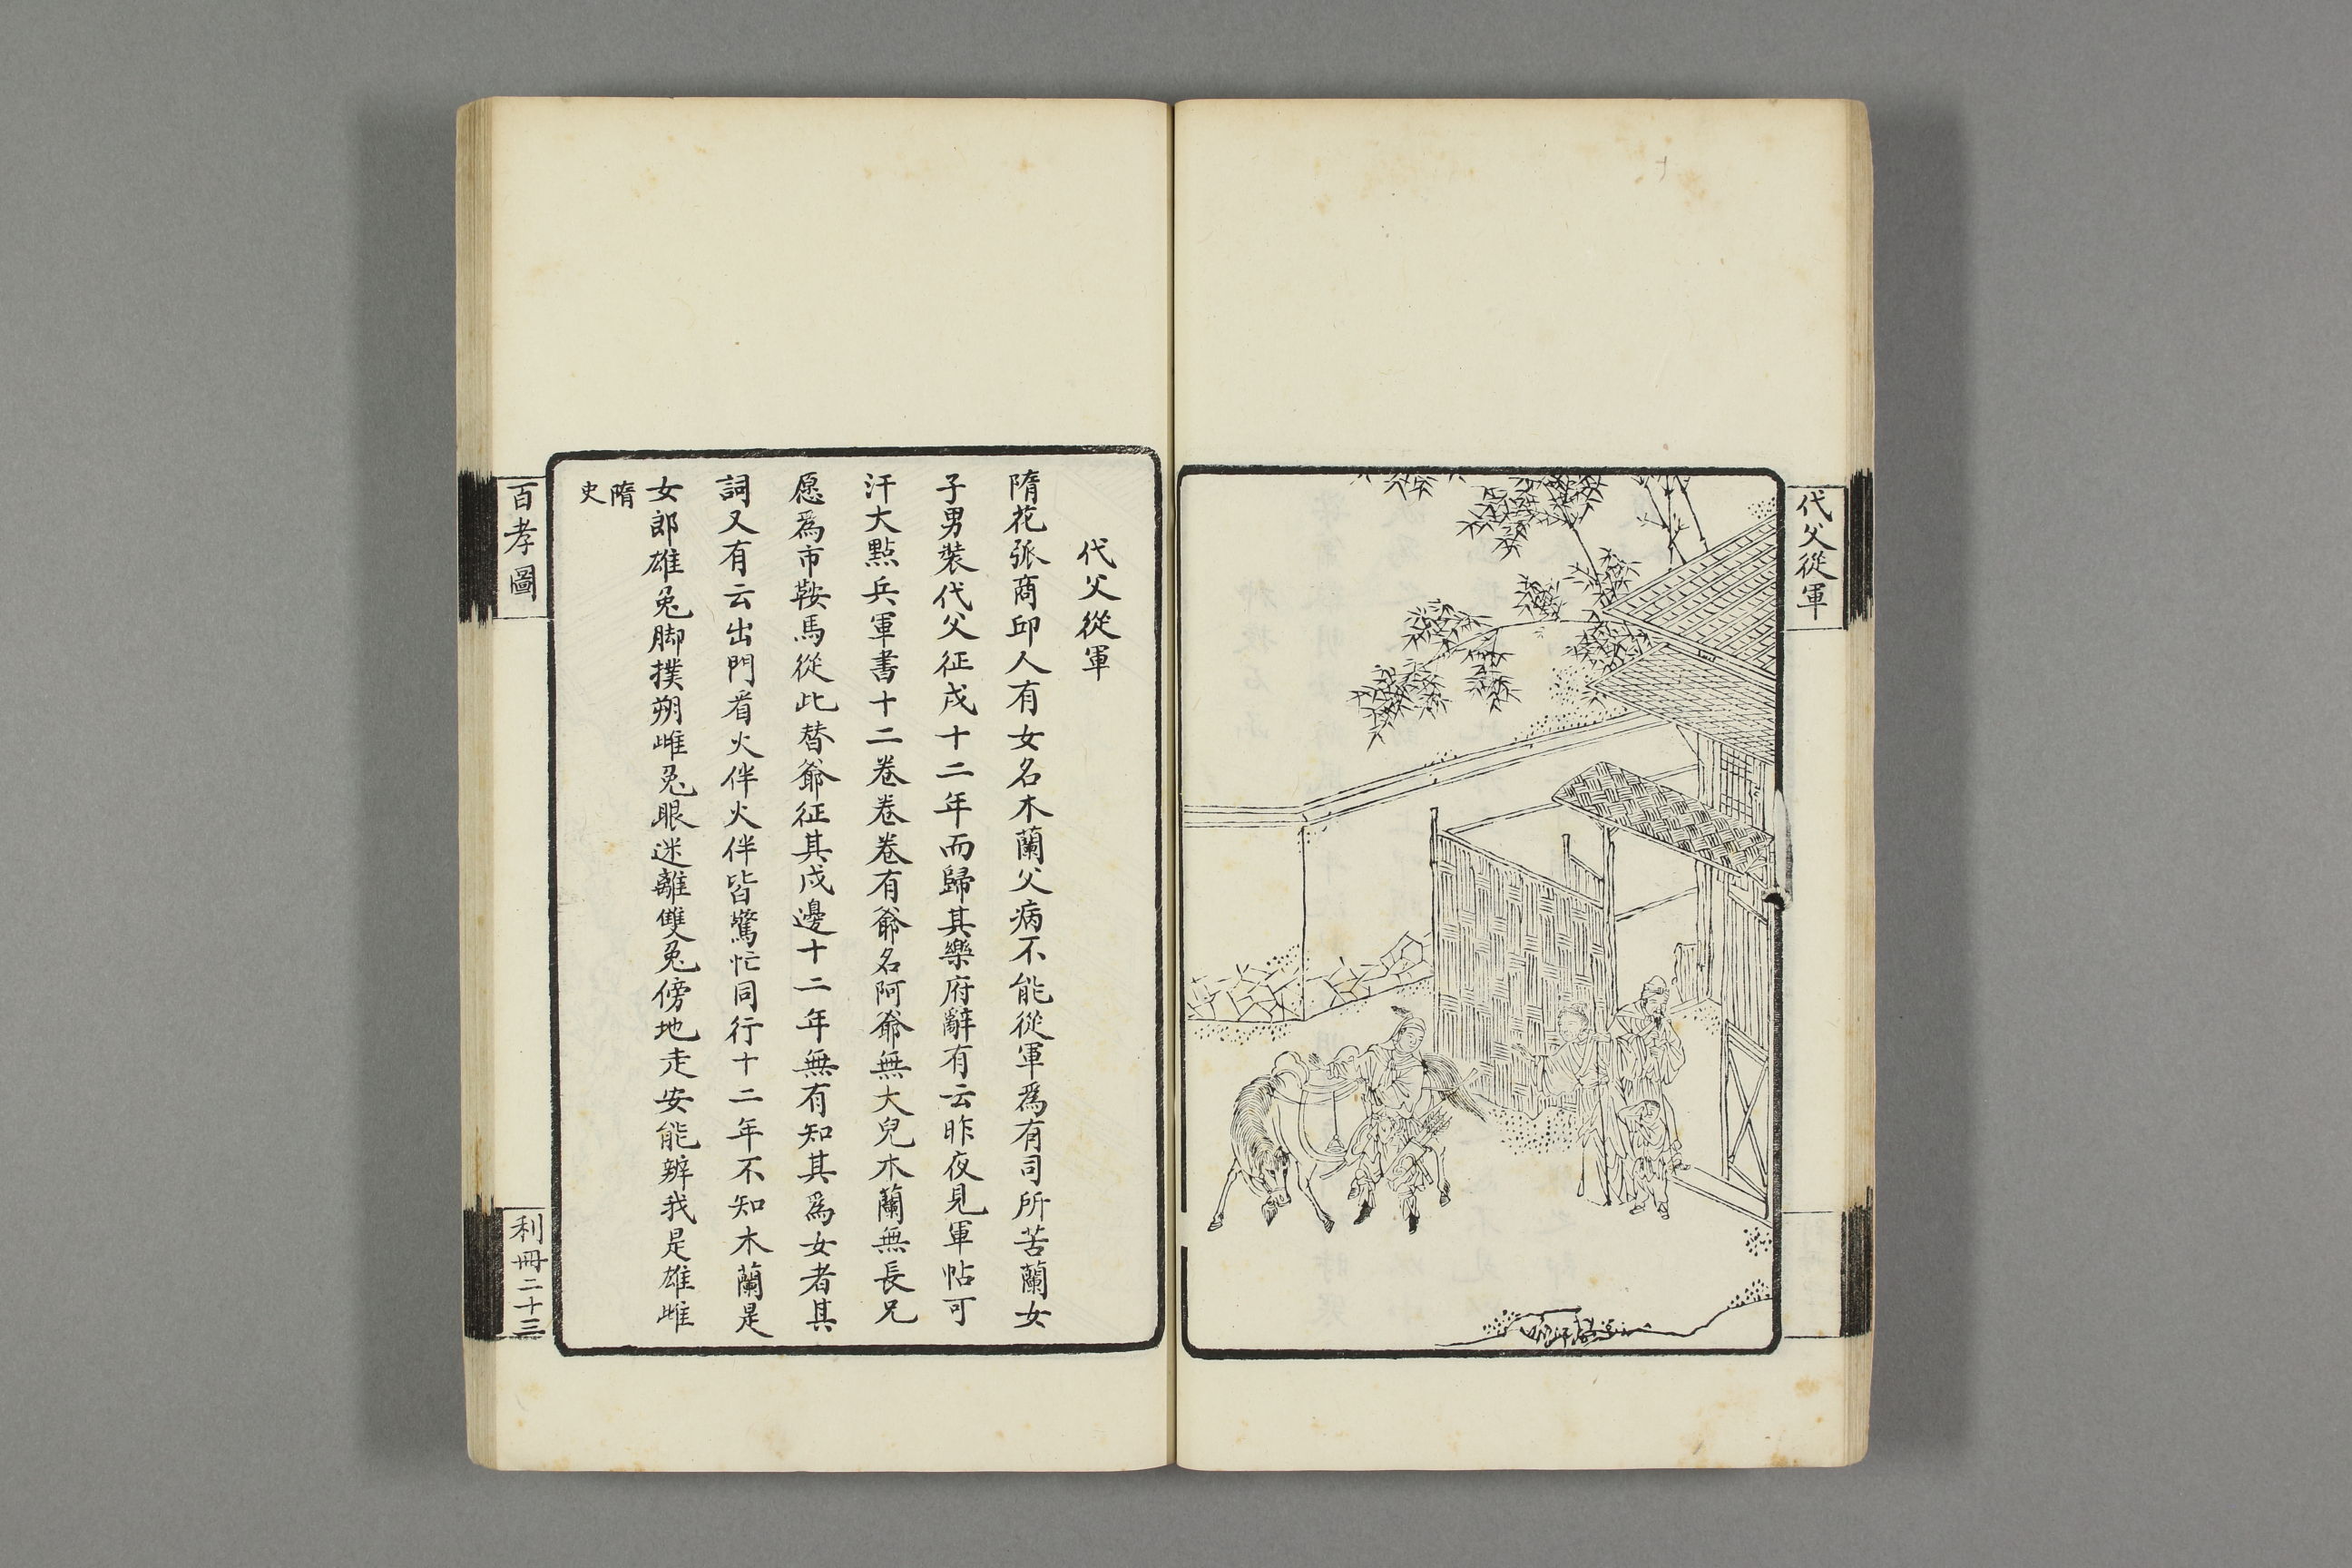 代父從軍
代父從軍
隋花弧商邱人有女名木蘭父病不能從軍爲有司所苦蘭女
子男裝代父征戍十二年而歸其樂府辭有云昨夜見軍帖可
汗大點兵軍書十二卷卷卷有爺名阿爺無大兒木蘭無長兄
愿爲市鞍馬從此替爺征其戍邊十二年無有知其爲女者其
詞又有云出門看火伴火伴皆驚忙同行十二年不知木蘭是
女郎雄兔脚撲朔雌兔眼迷離雙兔傍地走安能辨我是雄雌
隋
史
百孝圖
利冊二十三